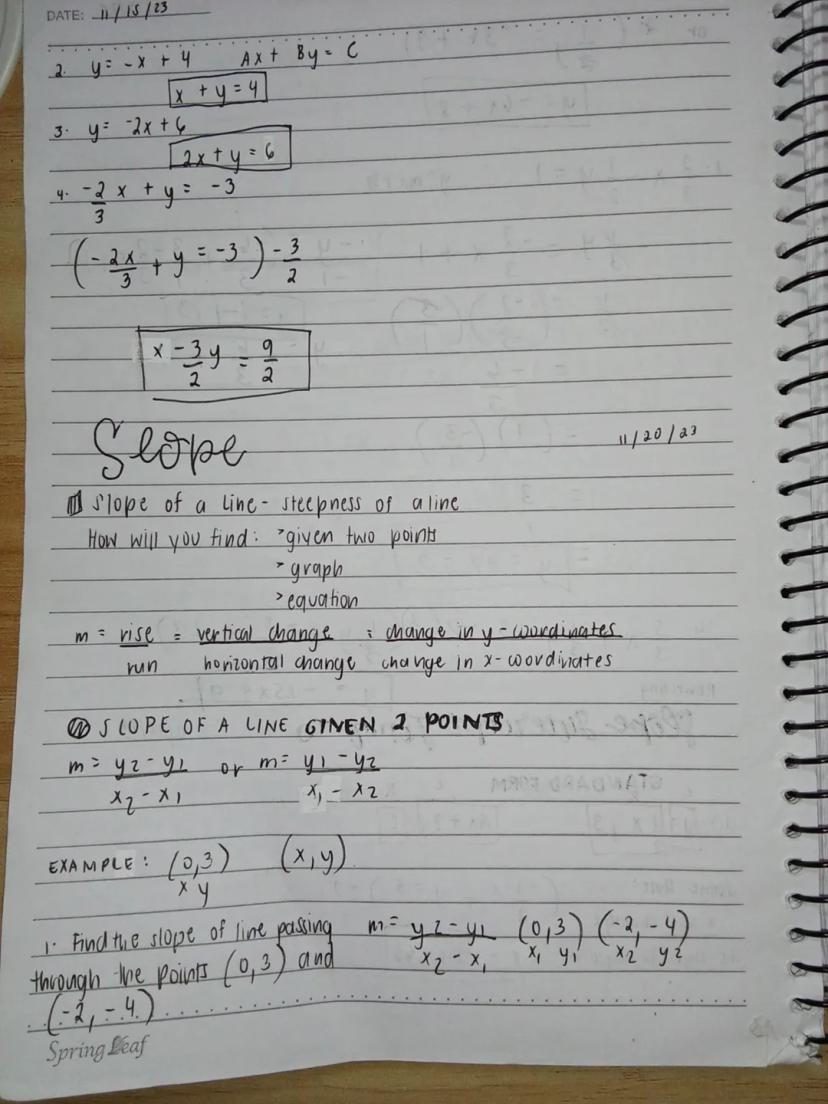 DATE: 11/15/23
2. y = -x + 4 Ax + By = C
x + y = 4
3. y = -2x + 6
2x + y = 6
4. -2/3 x + y = -3
(-2x/3 + y = -3) -3/2
x -3/2 y = 9/2
Slope 11/20/23
Slope of a line - steepness of a line
How will you find: >given two points
>graph
>equation
m = rise = vertical change = change in y-coordinates
run horizontal change change in x-coordinates
SLOPE OF A LINE GIVEN 2 POINTS
m = y2 - y1 or m = y1 - y2
x2 - x1 x1 - x2
EXAMPLE: (0,3) (x,y)
x y
1. Find the slope of line passing m = y2 - y1 (0,3) (-2,-4)
through the points (0,3) and x2 - x1 x1 y1 x2 y2
(-2,-4)
Spring Leaf